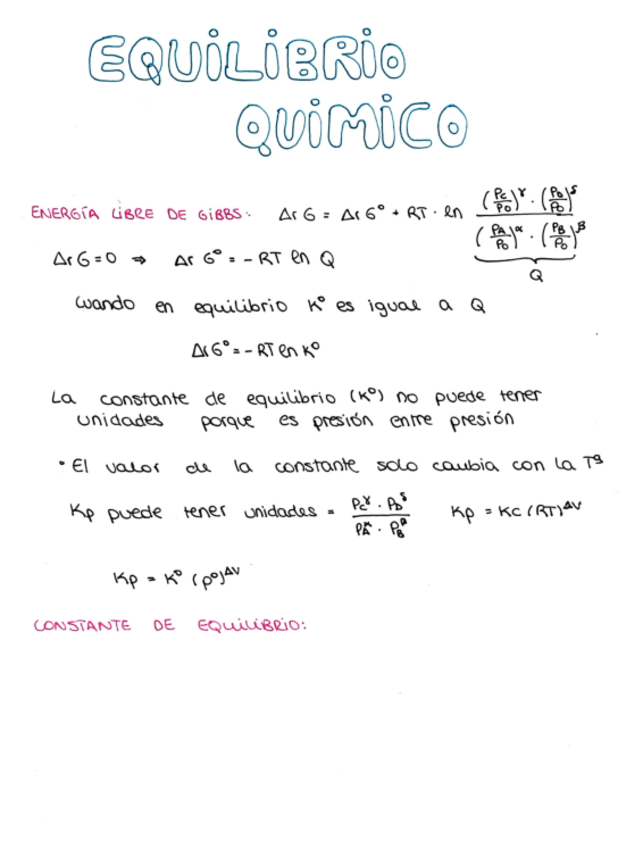 EQUILIBRIO
QUÍMICO
ENERGÍA LIBRE DE GIBBS: ΔrG = ΔrG° + RT · ln ((Pc/P0)^γ · (PD/P0)^δ) / ((PA/P0)^α · (PB/P0)^β)
Q
ΔrG=0 ⇒ ΔrG° = - RT ln Q
Cuando en equilibrio K° es igual a Q
ΔrG° = - RT ln K°
La constante de equilibrio (K°) no puede tener
unidades porque es presión entre presión
• El valor de la constante solo cambia con la Tª
Kp puede tener unidades = (Pc^γ · PD^δ) / (PA^α · PB^β) Kp = Kc (RT)^Δν
Kp = K° (p°)^Δν
CONSTANTE DE EQUILIBRIO: